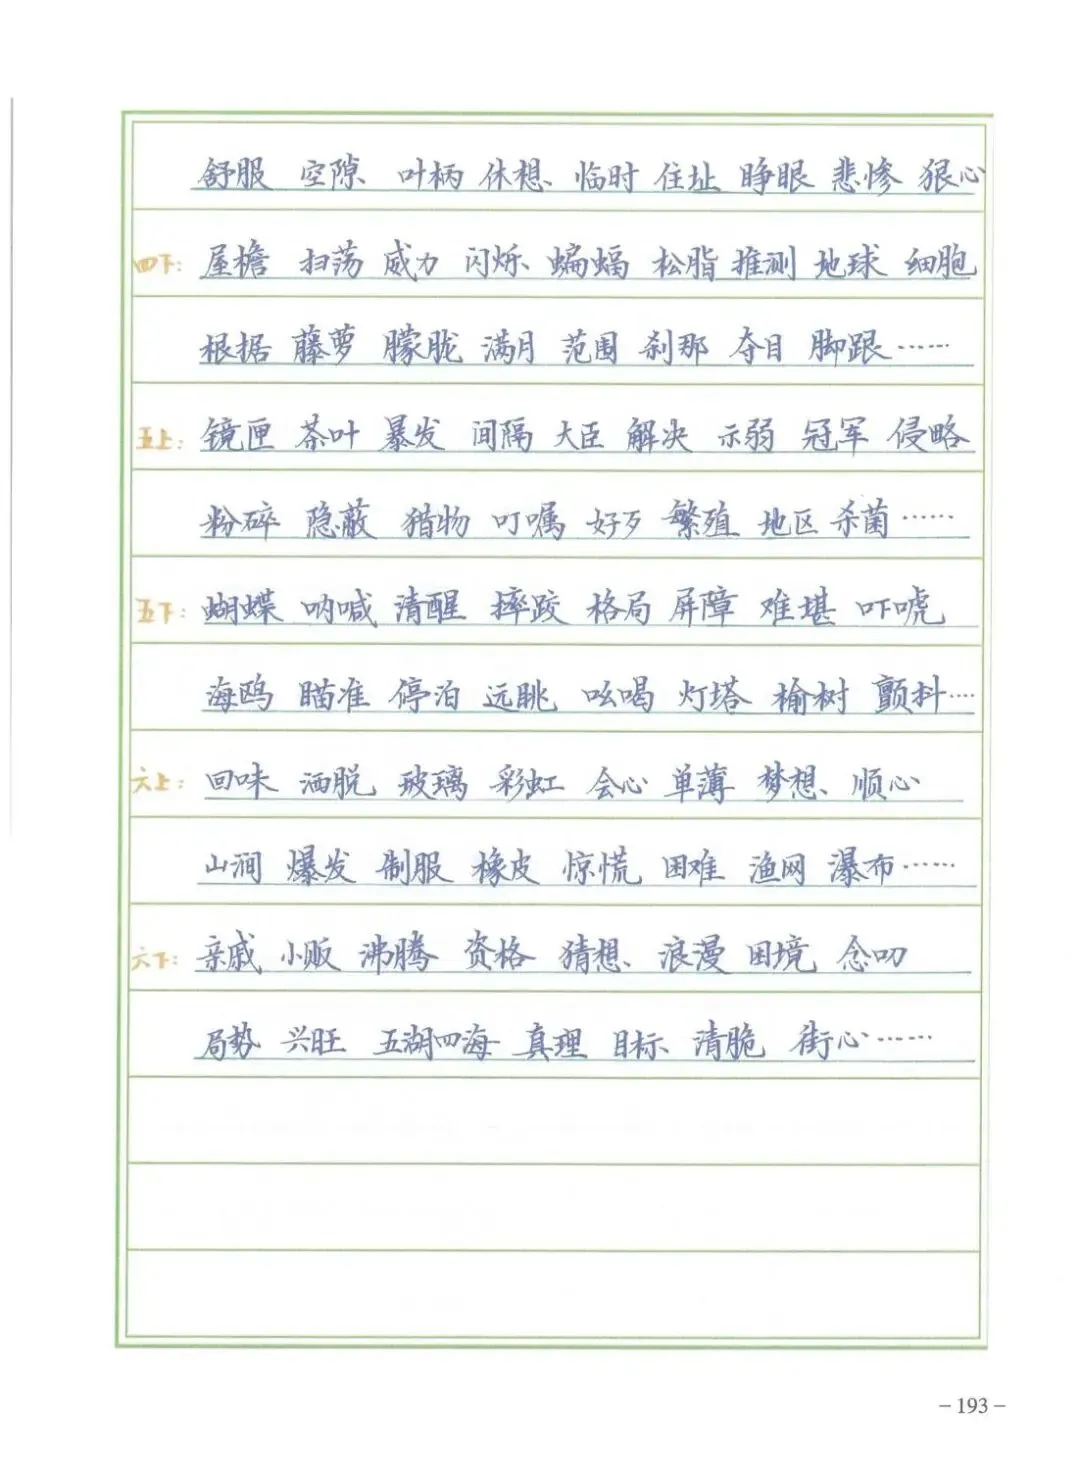 舒服 空隙 叶柄 休想 临时 住址 睁眼 悲惨 狠心
四下: 屋檐 扫荡 威力 闪烁 蝙蝠 松脂 推测 地球 细胞
根据 藤萝 朦胧 满月 范围 刹那 夺目 脚跟……
五上: 镜匣 茶叶 暴发 间隔 大臣 解决 示弱 冠军 侵略
粉碎 隐蔽 猎物 叮嘱 好歹 繁殖 地区 杀菌……
五下: 蝴蝶 呐喊 清醒 摔跤 格局 屏障 难堪 吓唬
海鸥 瞄准 停泊 远眺 吆喝 灯塔 榆树 颤抖……
六上: 回味 洒脱 玻璃 彩虹 会心 单薄 梦想 顺心
山涧 爆发 制服 橡皮 惊慌 困难 渔网 瀑布……
六下: 亲戚 小贩 沸腾 资格 猜想 浪漫 困境 念叨
局势 兴旺 五湖四海 真理 目标 清脆 街心……
-193-